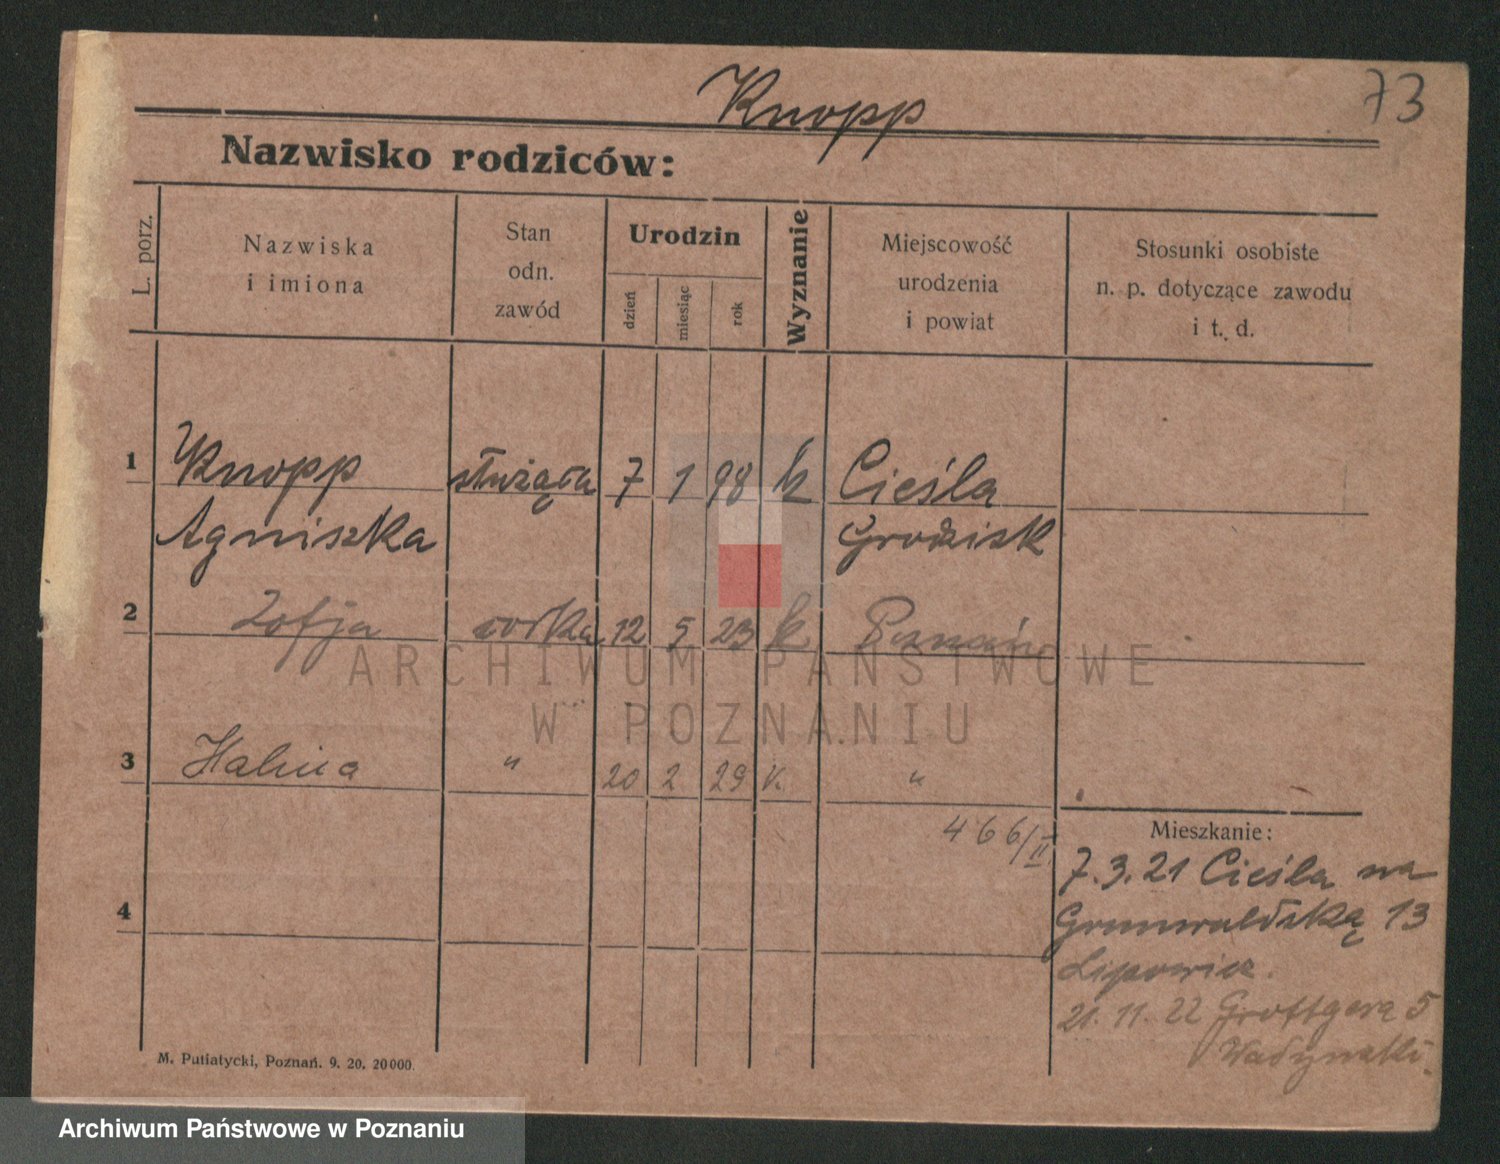 Knopp
73
Nazwisko rodziców:
L. porz.
Nazwiska
i imiona
Stan
odn.
zawód
Urodzin
dzień
miesiąc
rok
Wyznanie
Miejscowość
urodzenia
i powiat
Stosunki osobiste
n. p. dotyczące zawodu
i t. d.
1 Knopp służąca 7 1 98 k Cieśla
Agniszka Grodzisk
2 Zofja córka 12 5 23 k Poznań
ARCHIWUM PAŃSTWOWE
W POZNANIU
3 Halina " 20 2 29 K "
466/II
Mieszkanie:
7.3.21 Cieśla na
4 Grunwaldzką 13
Lipowicz.
21.11.22 Grottgera 5
M. Putiatycki, Poznań. 9. 20. 20000.
Archiwum Państwowe w Poznaniu